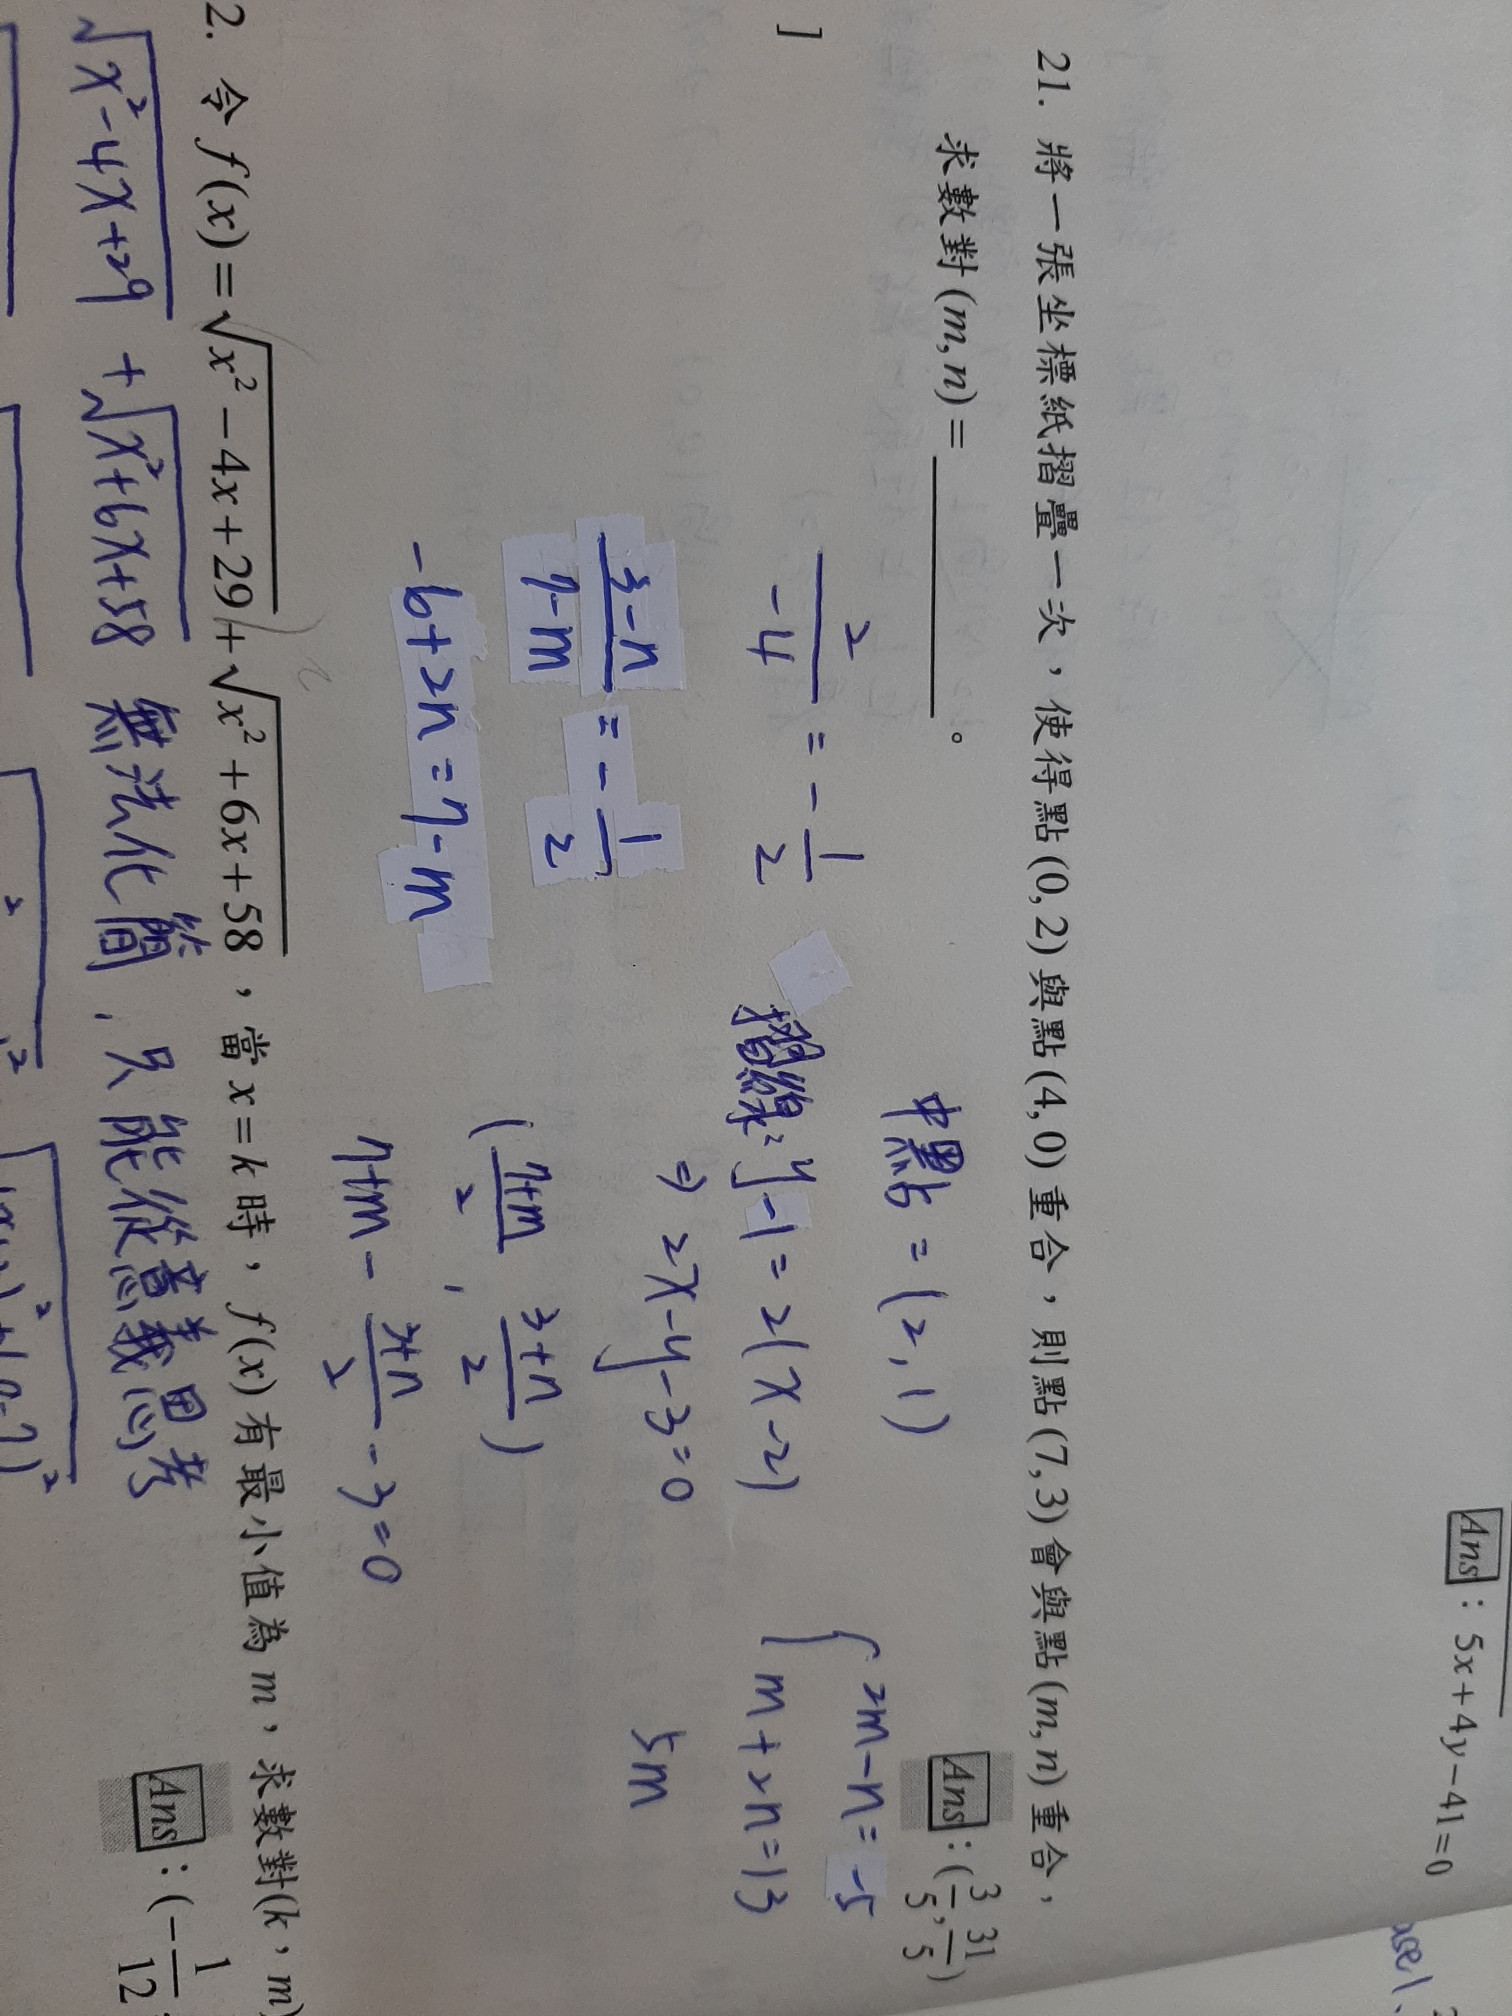 Ans : 5x+4y−41=0
21. 將一張坐標紙摺疊一次，使得點(0, 2)與點(4, 0)重合，則點(7, 3)會與點(m, n)重合，
求數對(m, n)=________。
Ans : (3/5, 31/5)
中點 = (2, 1)
2/-4 = -1/2
摺線: y-1=2(x-2)
⇒ 2x-y-3=0
3-n/7-m = -1/2
-6+2n=7-m
(7+m/2, 3+n/2)
7+m - 3+n/2 - 3=0
{ 2m-n=-5
m+2n=13
5m
2. 令 f(x)=√(x²−4x+29)+√(x²+6x+58)，當 x=k 時，f(x)有最小值為 m，求數對(k, m)
Ans : (−1/12
√(x²-4x+29) + √(x²+6x+58) 無法化簡，只能從意義思考